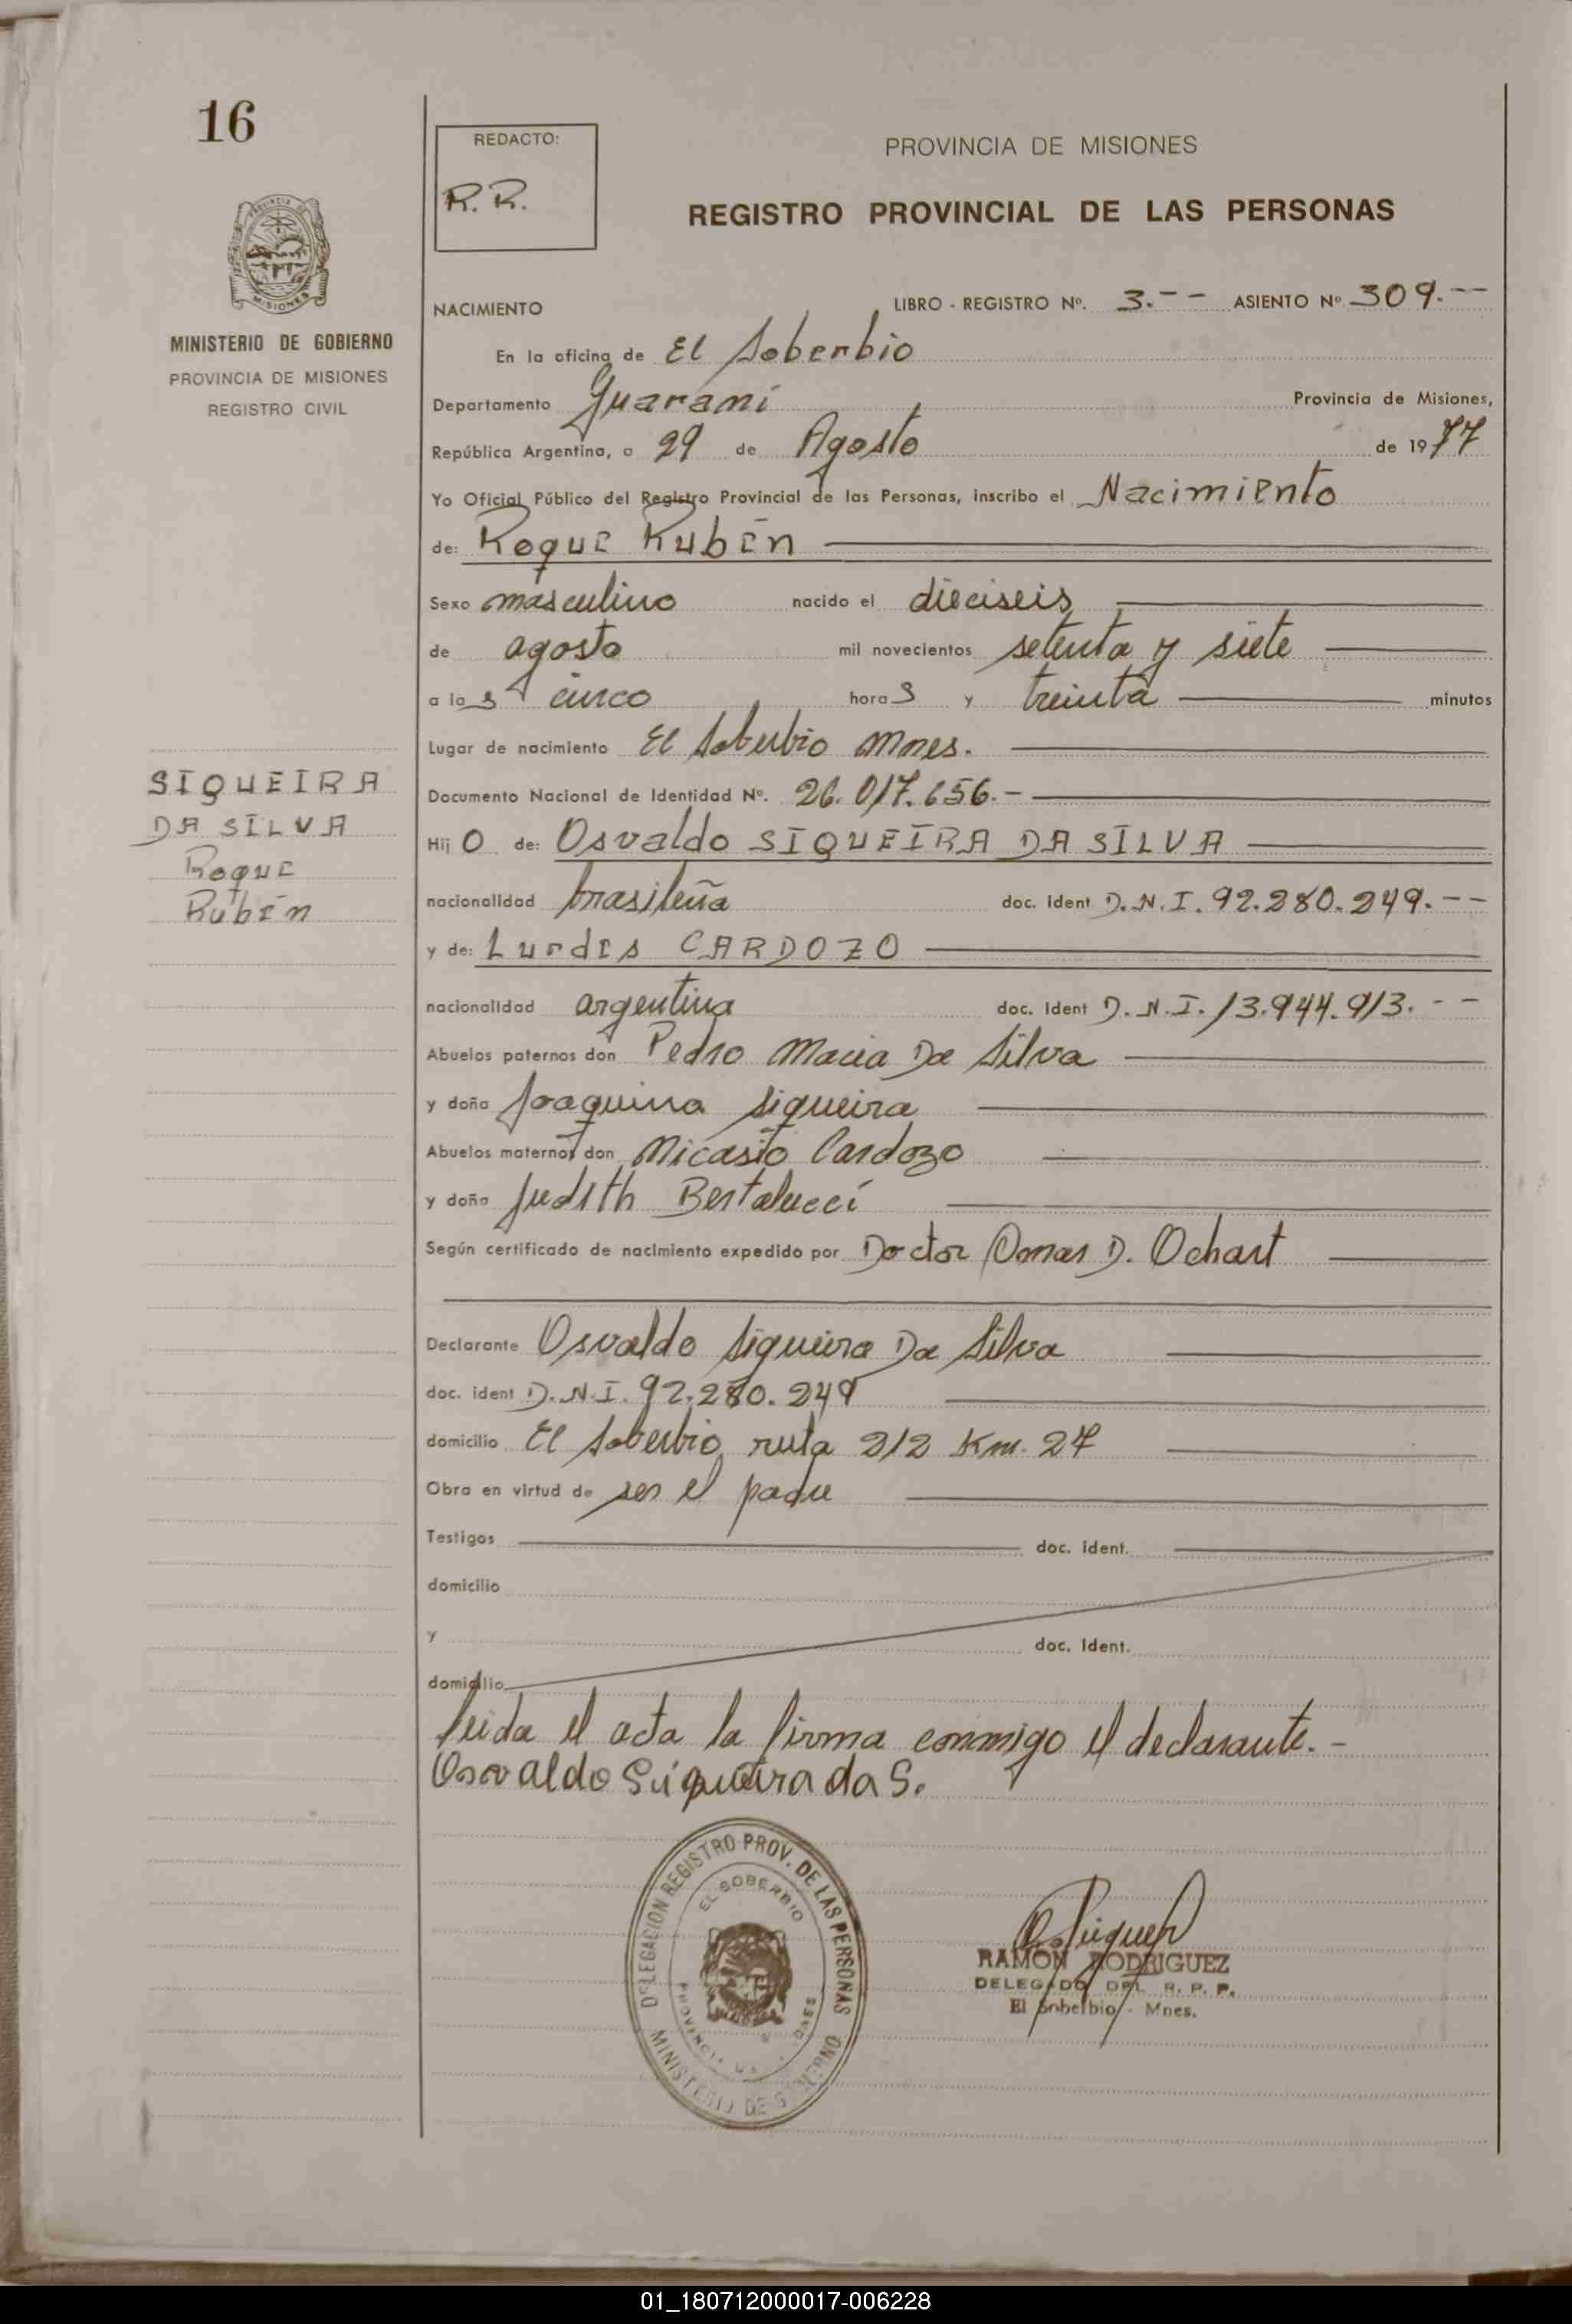 16
REDACTO:
R. R.
PROVINCIA DE MISIONES
REGISTRO PROVINCIAL DE LAS PERSONAS
MISIONES
MINISTERIO DE GOBIERNO
PROVINCIA DE MISIONES
REGISTRO CIVIL
NACIMIENTO LIBRO - REGISTRO Nº. 3.-- ASIENTO Nº 309.--
En la oficina de El Soberbio
Departamento Guaraní Provincia de Misiones,
República Argentina, a 29 de Agosto de 1977
Yo Oficial Público del Registro Provincial de las Personas, inscribo el Nacimiento
de: Roque Rubén
Sexo masculino nacido el dieciseis
de agosto mil novecientos setenta y siete
a las cinco horas y treinta minutos
Lugar de nacimiento El Soberbio Mnes.
Documento Nacional de Identidad Nº. 26.017.656.-
SIQUEIRA
DA SILVA
Roque
Rubén
Hijo de: Osvaldo SIQUEIRA DA SILVA
nacionalidad brasileña doc. ident D.N.I. 92.280.249.--
y de: Lurdes CARDOZO
nacionalidad argentina doc. ident D.N.I. 13.944.913.--
Abuelos paternos don Pedro Macia Da Silva
y doña Joaquina Siqueira
Abuelos maternos don Micasio Cardozo
y doña Judith Bertalucci
Según certificado de nacimiento expedido por Doctor Omar D. Ochart
Declarante Osvaldo Siqueira Da Silva
doc. ident D.N.I. 92.280.249
domicilio El Soberbio ruta 212 Km. 27
Obra en virtud de ser el padre
Testigos doc. ident.
domicilio
y doc. ident.
domicilio
leida el acta la firma conmigo el declarante.-
Osvaldo Siqueira da S.
DELEGACION REGISTRO PROV. DE LAS PERSONAS
EL SOBERBIO
MINISTERIO DE GOBIERNO
RAMON RODRIGUEZ
DELEGADO DEL R. P. P.
El Soberbio - Mnes.
01_180712000017-006228